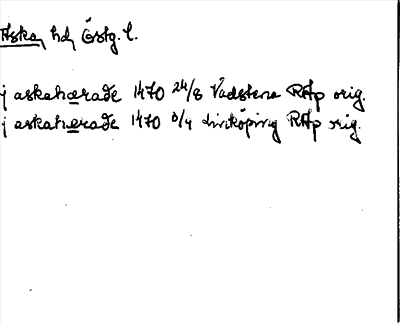 Aska hd Östg. l.
j askahærade 1470 24/8 Vadstena RAp orig.
j askahærade 1470 /4 Linköping RAp orig.